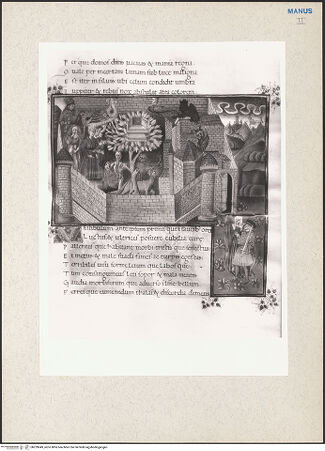 MANUS
II
P er que domos ditis uacuas & inania regna
Q uale per incertam lunam sub luce maligna
E st iter in siluis ubi celum condidit umbra
I uppiter & rebus nox abstulit atra colorem
V estibulum ante primis
L uctus & ultrices posuere cubilia cure
P allentes que habitant morbi tristis que senectus
E t metus & male suada fames & turpis egestas
T erribiles uisu forme letum que labos que
T um consanguineus leti sopor & mala mentis
G audia mortiferum que aduerso limine bellum
F errei que eumenidum thalami & discordia demens